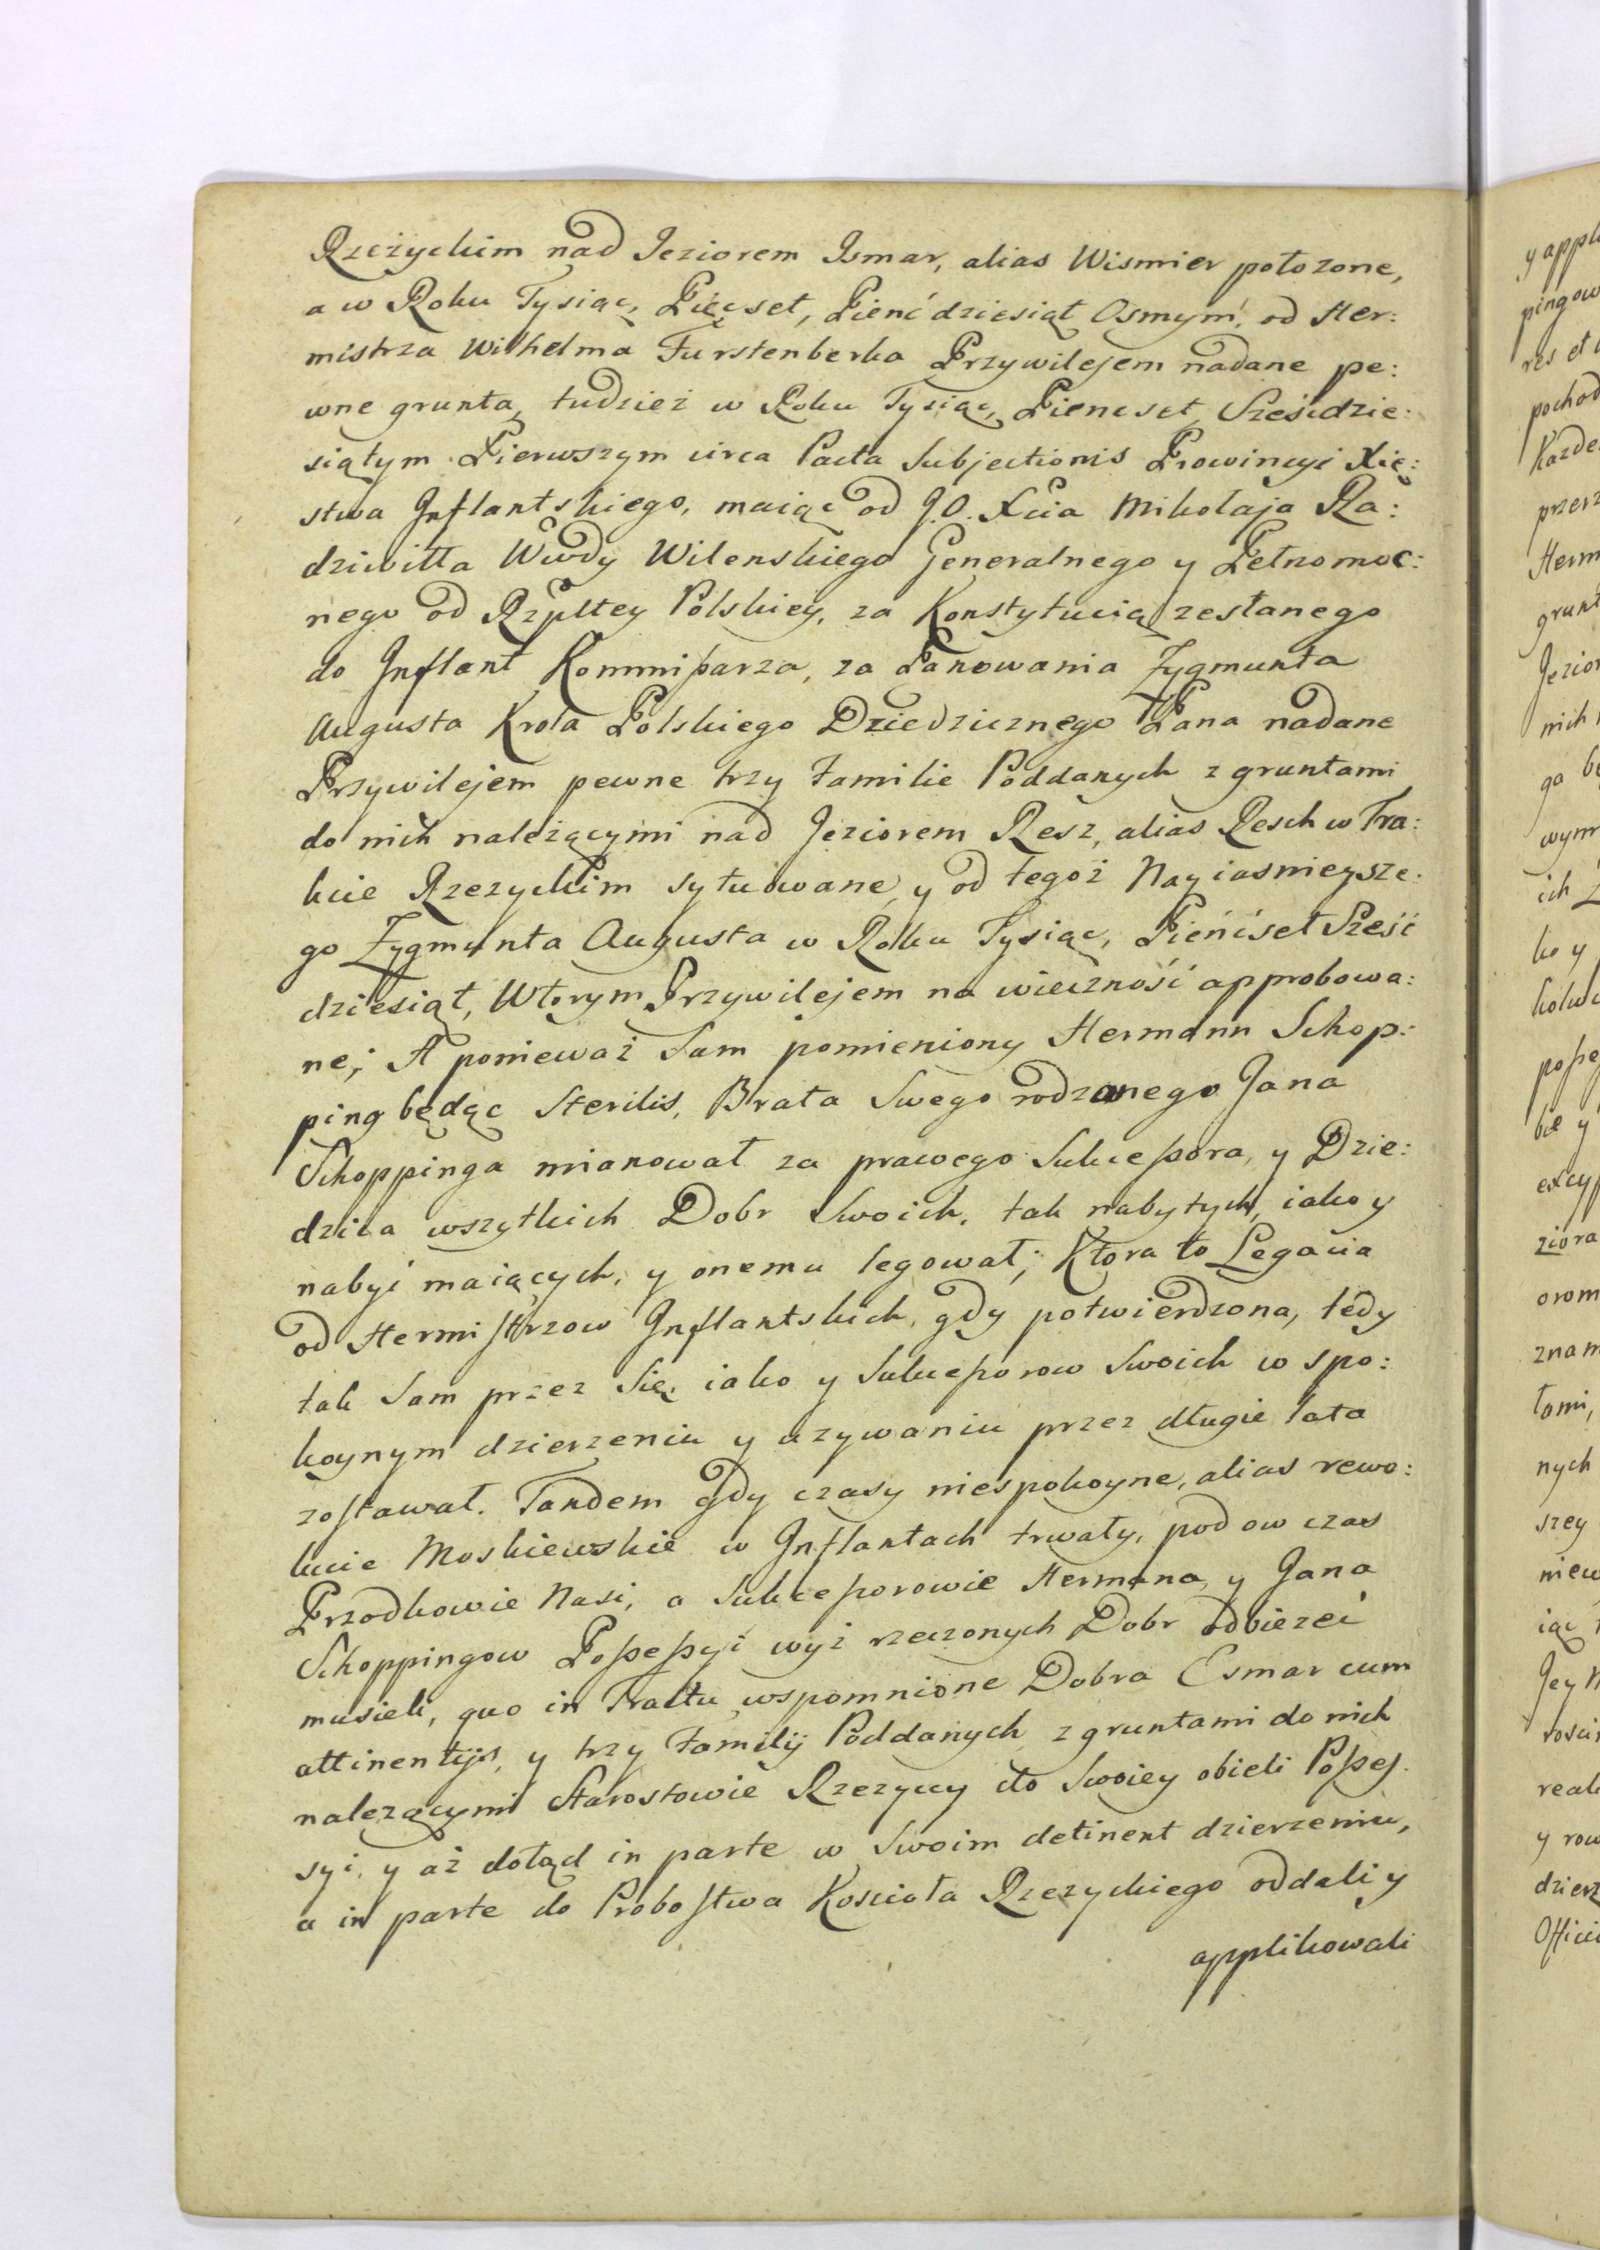 Rzeżyckim nad Jeziorem Ismar, alias Wismier położone,
a w Roku Tysiąc, Pięcset, Pienćdziesiąt Osmym, od Her:
mistrza Wilhelma Furstenberka Przywilejem nadane pe:
wne grunta, tudzież w Roku Tysiąc, Piencset, Sześcdzie:
siątym Pierwszym circa Pacta Subjectionis Prowincyi Xię:
stwa Inflantskiego, maiąc od J.O. Xcia Mikołaja Ra:
dziwiłła Wwdy Wilenskiego Generalnego y Pełnomoc:
nego od Rzpltey Polskiey, za Konstytucią zesłanego
do Inflant Kommißarza, za Panowania Zygmunta
Augusta Krola Polskiego Dziedzicznego Pana nadane
Przywilejem pewne trzy Familie Poddanych z gruntami
do nich należącymi nad Jeziorem Resz, alias Resch w Tra:
kcie Rzezyckim sytuowane, y od tegoż Nayiasnieysze:
go Zygmunta Augusta w Roku Tysiąc, Pieńćset Sześć
dziesiąt, Wtorym Przywilejem na wieczność approbowa:
ne; A ponieważ Sam pomieniony Hermann Schop:
ping będąc Sterilis, Brata Swego rodzonego Jana
Schoppinga mianował za prawego Sukceßora, y Dzie:
dzica wszytkich Dobr Swoich, tak nabytych, iako y
nabyć maiących, y onemu legował; Ktora to Legacia
od Hermistrzow Inflantskich, gdy potwierdzona, tedy
tak Sam przez Się, iako y Sukceßorow Swoich w spo:
koynym dzierzeniu y uzywaniu przez długie lata
zostawał. Tandem gdy czasy niespokoyne, alias rewo:
lucie Moskiewskie w Inflantach trwały, pod ow czas
Przodkowie Nasi, a Sukceßorowie Hermana, y Jana
Schoppingow Poßeßyi wyż rzeczonych Dobr odbieżeć
musieli, quo in Tractu wspomnione Dobra Esmar cum
attinentijs, y trzy Familij Poddanych z gruntami do nich
nalezącymi Starostowie Rzezyccy do Swoiey obieli Poßes.
syi, y aż dotąd in parte w Swoim detinent dzierzeniu,
a in parte do Probostwa Kosciała Rzezyckiego oddali y
applikowali